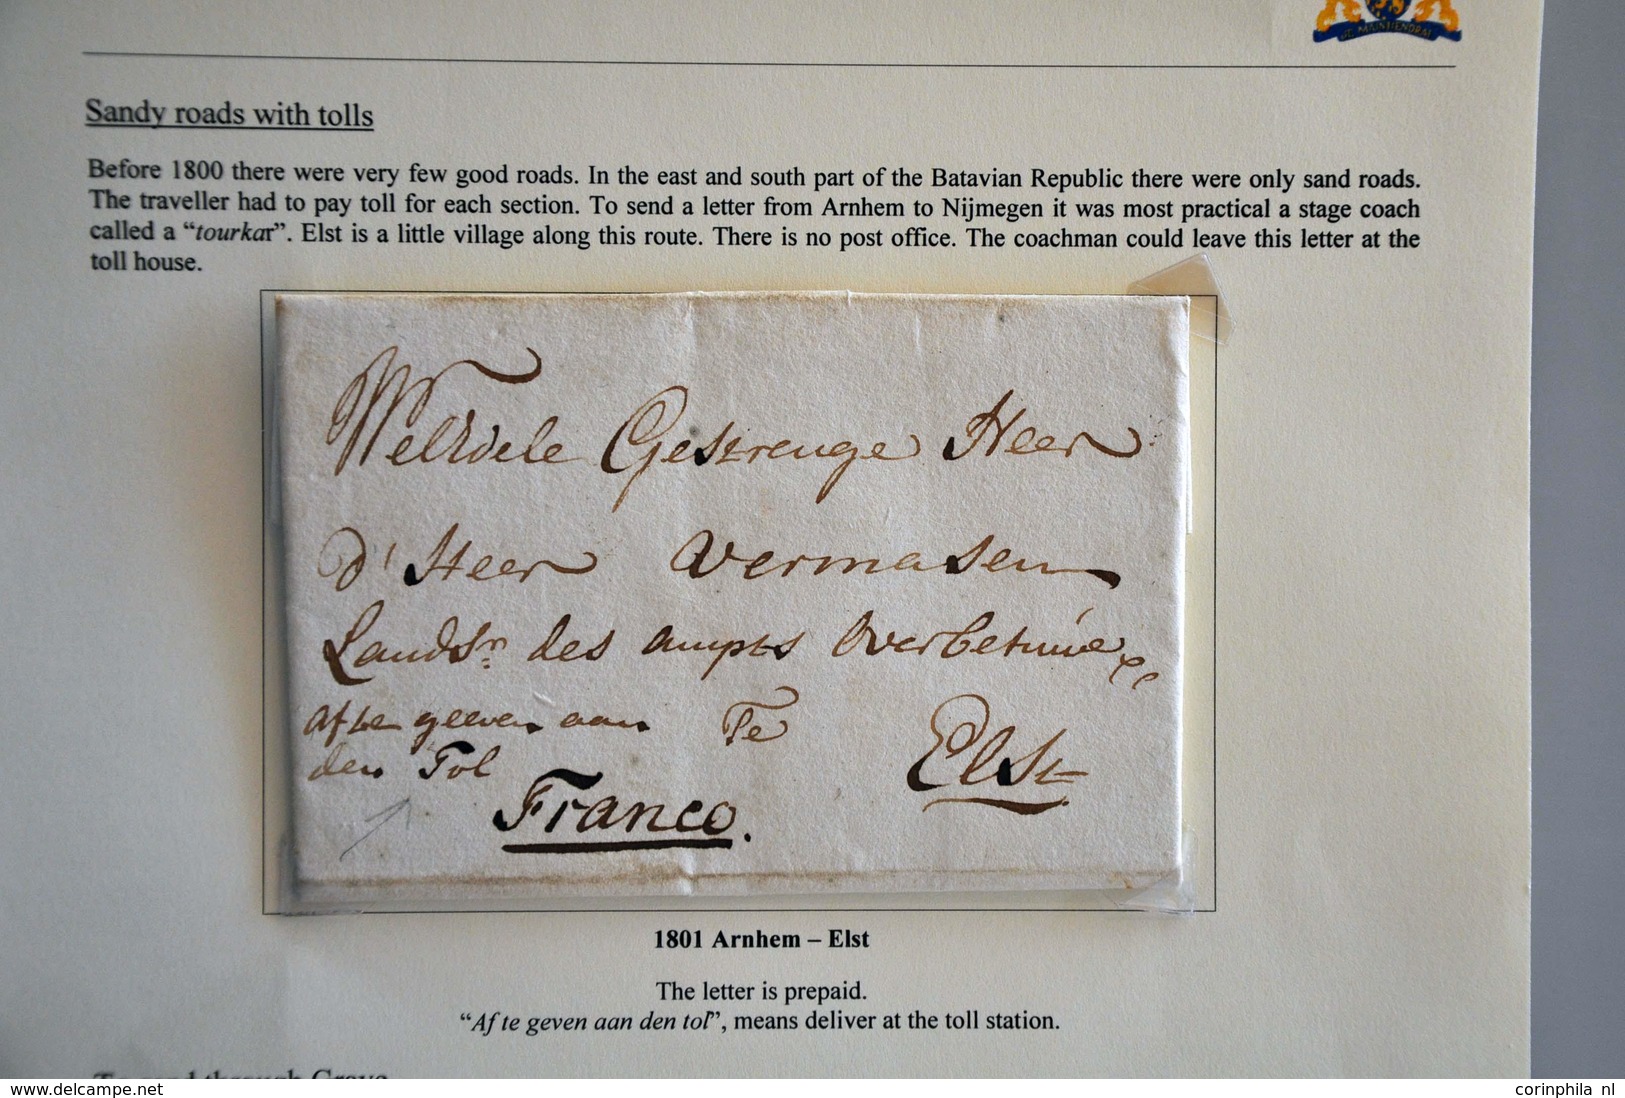 JE MAINTIENDRAI
Sandy roads with tolls
Before 1800 there were very few good roads. In the east and south part of the Batavian Republic there were only sand roads.
The traveller had to pay toll for each section. To send a letter from Arnhem to Nijmegen it was most practical a stage coach
called a “tourkar”. Elst is a little village along this route. There is no post office. The coachman could leave this letter at the
toll house.
WelEdele Gestrenge Heer
d' Heer Vermasen
Landsr. des ampts Overbetuwe
af te geeven aan Te Elst
den Tol
Franco.
1801 Arnhem – Elst
The letter is prepaid.
“Af te geven aan den tol”, means deliver at the toll station.
through Grave
www.delcampe.net
corinphila nl